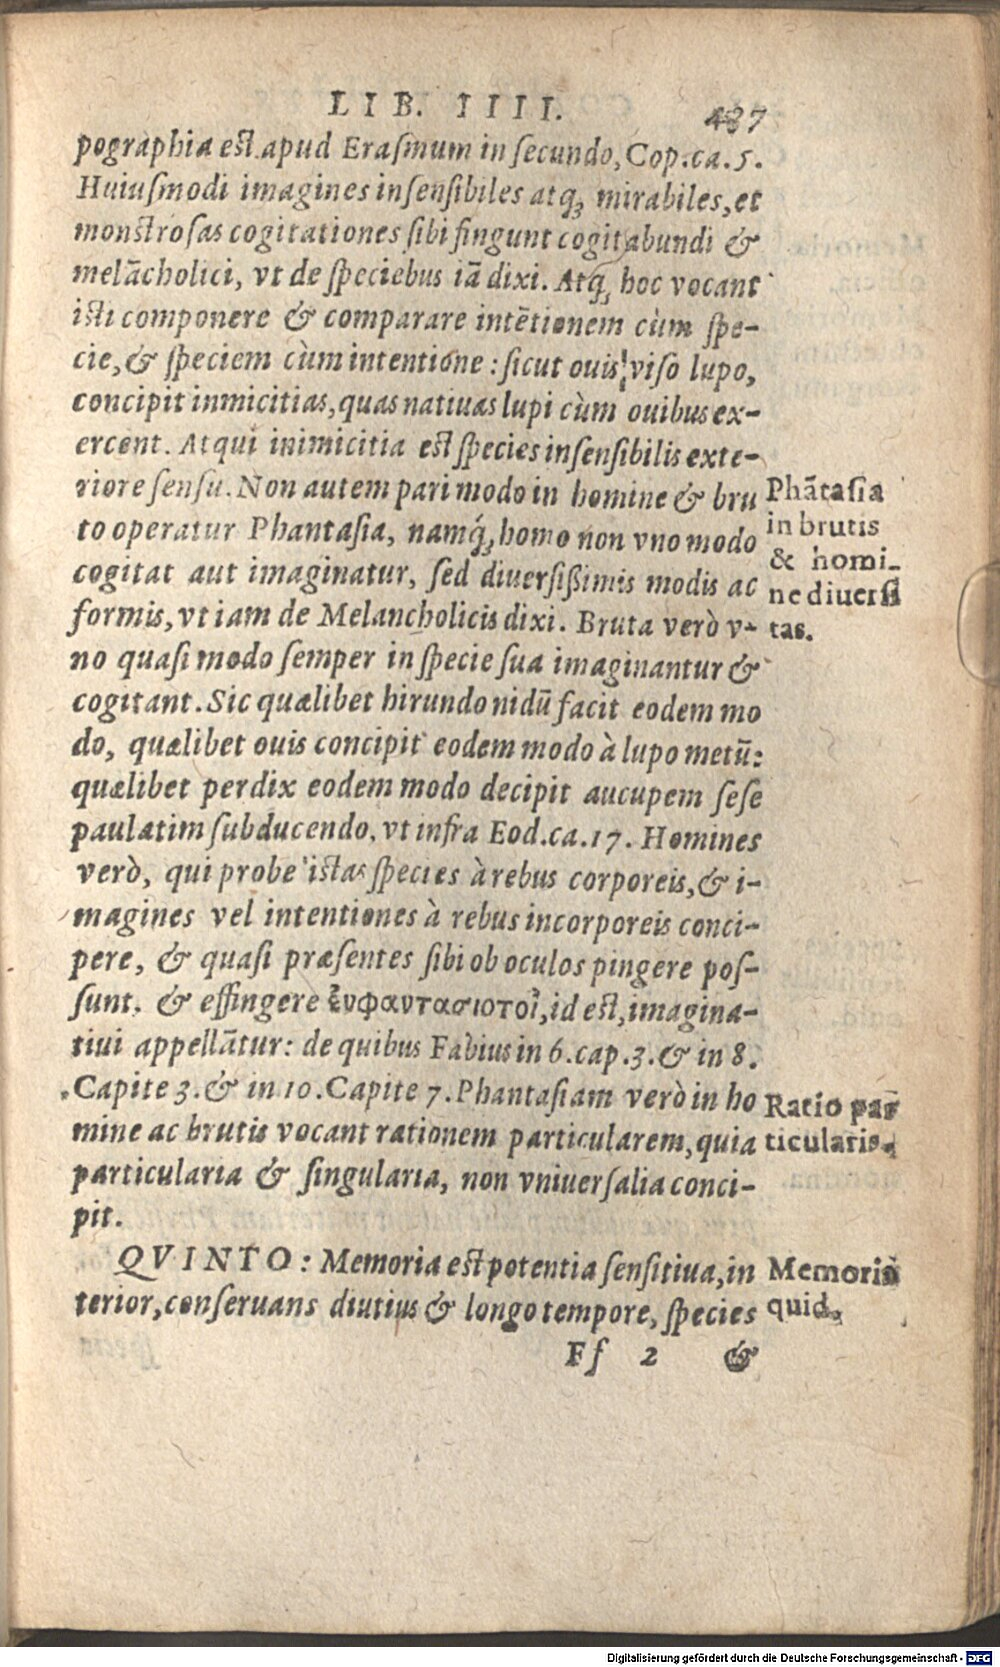 LIB. IIII. 487
pographia est apud Erasmum in secundo, Cop.ca.5.
Huiusmodi imagines insensibiles atq; mirabiles, et
monstrosas cogitationes sibi fingunt cogitabundi &
melãcholici, vt de speciebus iã dixi. Atq; hoc vocant
isti componere & comparare intẽtionem cùm spe-
cie, & speciem cùm intentione: sicut ouis viso lupo,
concipit inmicitias, quas natiuas lupi cùm ouibus ex-
ercent. Atqui inimicitia est species insensibilis exte-
riore sensu. Non autem pari modo in homine & bru
to operatur Phantasia, namq́; homo non vno modo
cogitat aut imaginatur, sed diuersißimis modis ac
formis, vt iam de Melancholicis dixi. Bruta verò v-
no quasi modo semper in specie sua imaginantur &
cogitant. Sic quælibet hirundo nidũ facit eodem mo
do, quælibet ouis concipit eodem modo à lupo metũ:
quælibet perdix eodem modo decipit aucupem sese
paulatim subducendo, vt infra Eod.ca.17. Homines
verò, qui probe istas species à rebus corporeis, & i-
magines vel intentiones à rebus incorporeis conci-
pere, & quasi præsentes sibi ob oculos pingere pos-
sunt, & effingere ἐυφαντασιοτοἰ, id est, imagina-
tiui appellãtur: de quibus Fabius in 6. cap.3. & in 8.
Capite 3. & in 10. Capite 7. Phantasiam verò in ho
mine ac brutis vocant rationem particularem, quia
particularia & singularia, non vniuersalia conci-
pit.
QVINTO: Memoria est potentia sensitiua, in
terior, conseruans diutius & longo tempore, species
Ff 2 &
Phãtasia
in brutis
& homi-
ne diuersi
tas.
Ratio par
ticularis.
Memoria
quid.
Digitalisierung gefördert durch die Deutsche Forschungsgemeinschaft - DFG